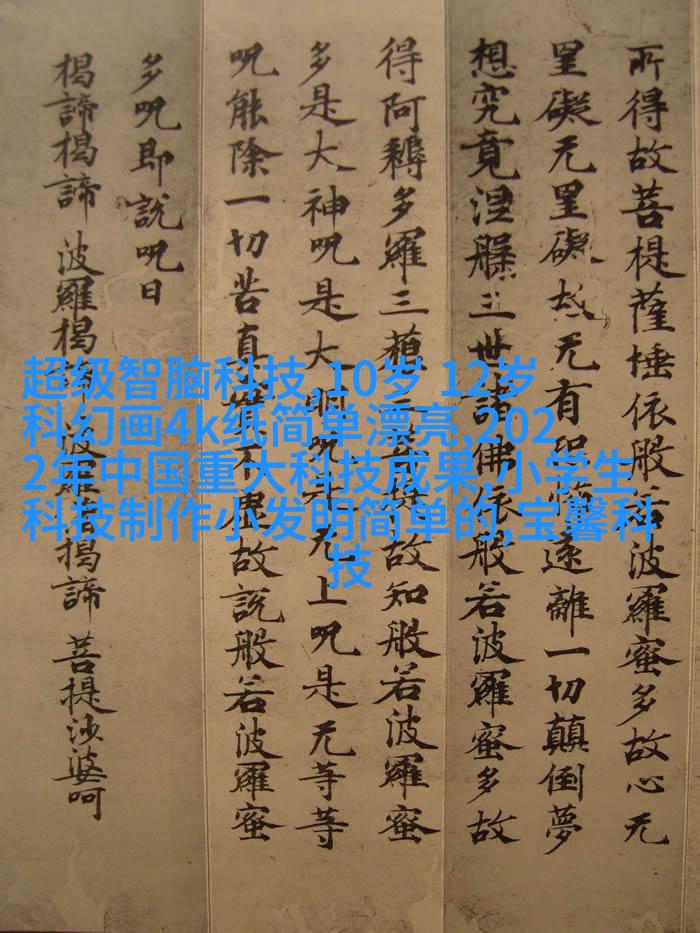 所得故菩提薩埵依般若波羅蜜多故心无
罣礙无罣礙故无有恐怖遠離一切顛倒夢
想究竟涅槃三世諸佛依般若波羅蜜多故
得阿耨多羅三藐三菩提故知般若波羅蜜
多是大神呪是大明呪是无上呪是无等等
呪能除一切苦真實不虛故說般若波羅蜜
多呪即說呪曰
揭諦揭諦 波羅揭諦 波羅僧揭諦 菩提沙婆呵
超级智脑科技,10岁 12岁
科幻画4k纸简单漂亮,202
2年中国重大科技成果,小学生
科技制作小发明简单的,宝馨科
技